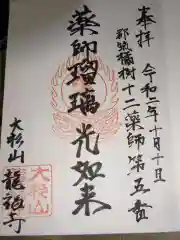 奉拝
令和二年十月十日
都筑橘樹十二薬師第五番
薬師瑠璃光如来
大松山
龍福寺
大松山